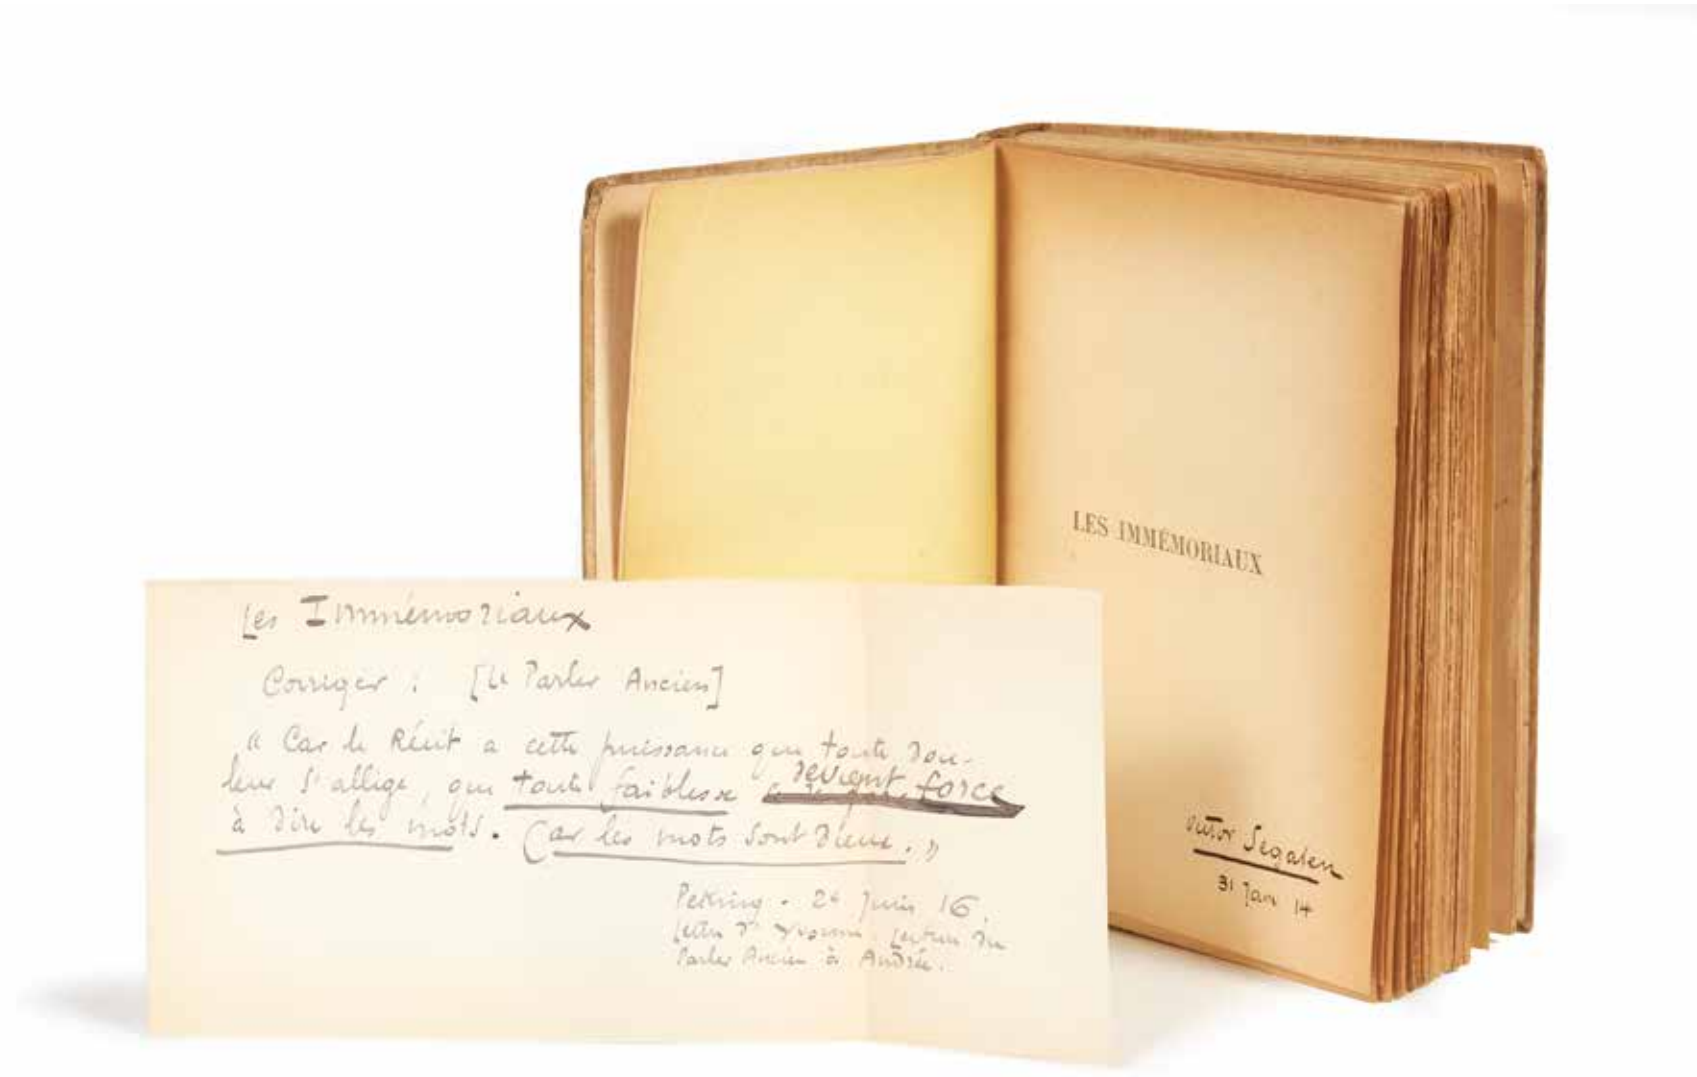 LES IMMÉMORIAUX
Victor Segalen
31 Jan 14
Les Immémoriaux
Corriger : [Le Parler Ancien]
« Car le Récit a cette puissance que toute dou-
leur s'allège, que toute faiblesse devient force
à dire les mots. Car les mots sont dieux. »
Peking - 26 Juin 16.
Lettre d' Yvonne. Lecture du
Parler Ancien à Andrée.